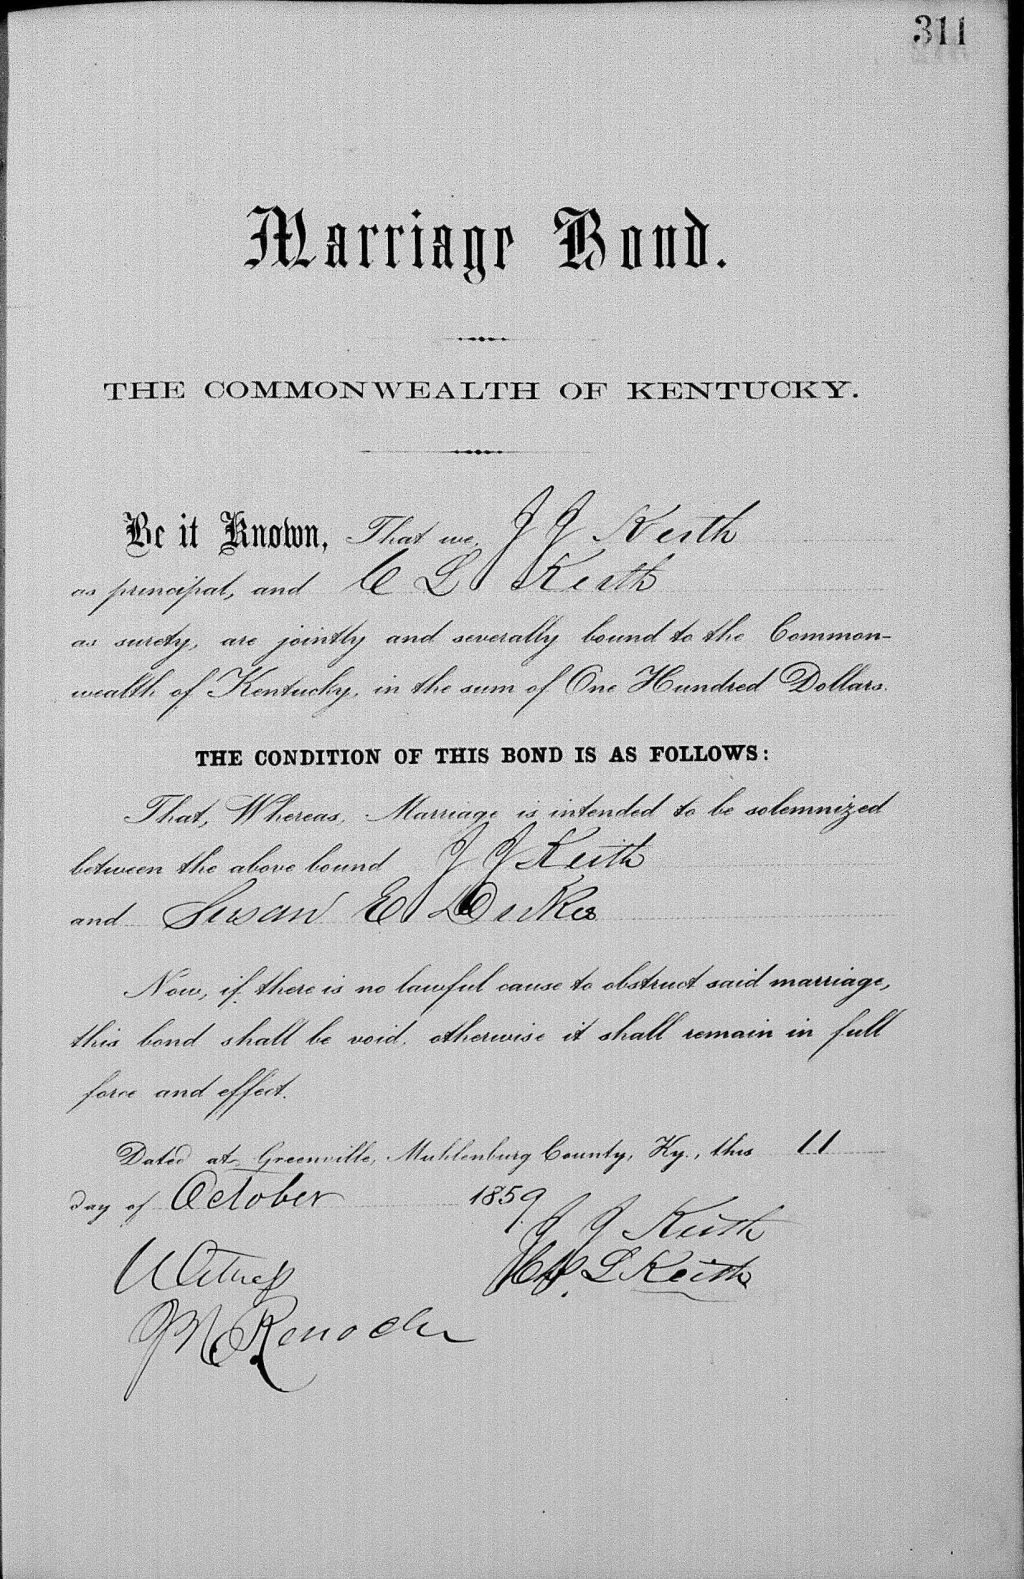 311
Marriage Bond.
THE COMMONWEALTH OF KENTUCKY.
Be it Known, That we, J J Keith
as principal, and C L Keith
as surety, are jointly and severally bound to the Common-
wealth of Kentucky, in the sum of One Hundred Dollars.
THE CONDITION OF THIS BOND IS AS FOLLOWS:
That, Whereas, Marriage is intended to be solemnized
between the above bound J J Keith
and Susan E Dukes
Now, if there is no lawful cause to obstruct said marriage,
this bond shall be void, otherwise it shall remain in full
force and effect.
Dated at Greenville, Muhlenburg County, Ky., this 11
day of October 1859.
J J Keith
L Keith
Witness